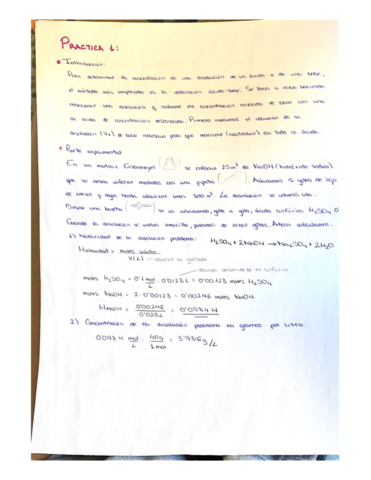 PRACTICA 1:
Introducción:
Para determinar la concentración de una disolución de un ácido o de una base,
el método más empleado es la valoración ácido-base. Se lleva a cabo haciendo
reaccionar una disolución de concentración conocida de base con una
de ácido de concentración desconocida. Primero medimos el volumen de la
disolución (Vb) de base necesario para que reaccione (neutralice) con todo el ácido.
Parte experimental:
En un matraz Erlenmeyer ( ) se colocan 25 ml de NaOH (hidróxido sódico)
que se deben colocar medidos con una pipeta ( ). Añadimos 5 gotas de rojo
de cresol y agua hasta obtener unos 100 ml. La disolución se volverá lila.
Desde una bureta ( ) se va añadiendo, gota a gota, ácido sulfúrico H₂SO₄ 0'
Cuando la disolución se vuelva amarilla, paramos de echar gotas. Ahora calculamos:
1) Molaridad de la disolución problema: H₂SO₄ + 2NaOH → Na₂SO₄ + 2H₂O
Molaridad = moles soluto
V(L)
moles H₂SO₄ = 0'1 mol/L · 0'0123 L = 0'00123 moles H₂SO₄
moles NaOH = 2 · 0'00123 = 0'00246 moles NaOH
M NaOH = 0'00246 / 0'025L = 0'0984 M
2) Concentración de la disolución problema en gramos por litro.
0'0984 mol/L · 40g/1 mol = 3'936 g/L